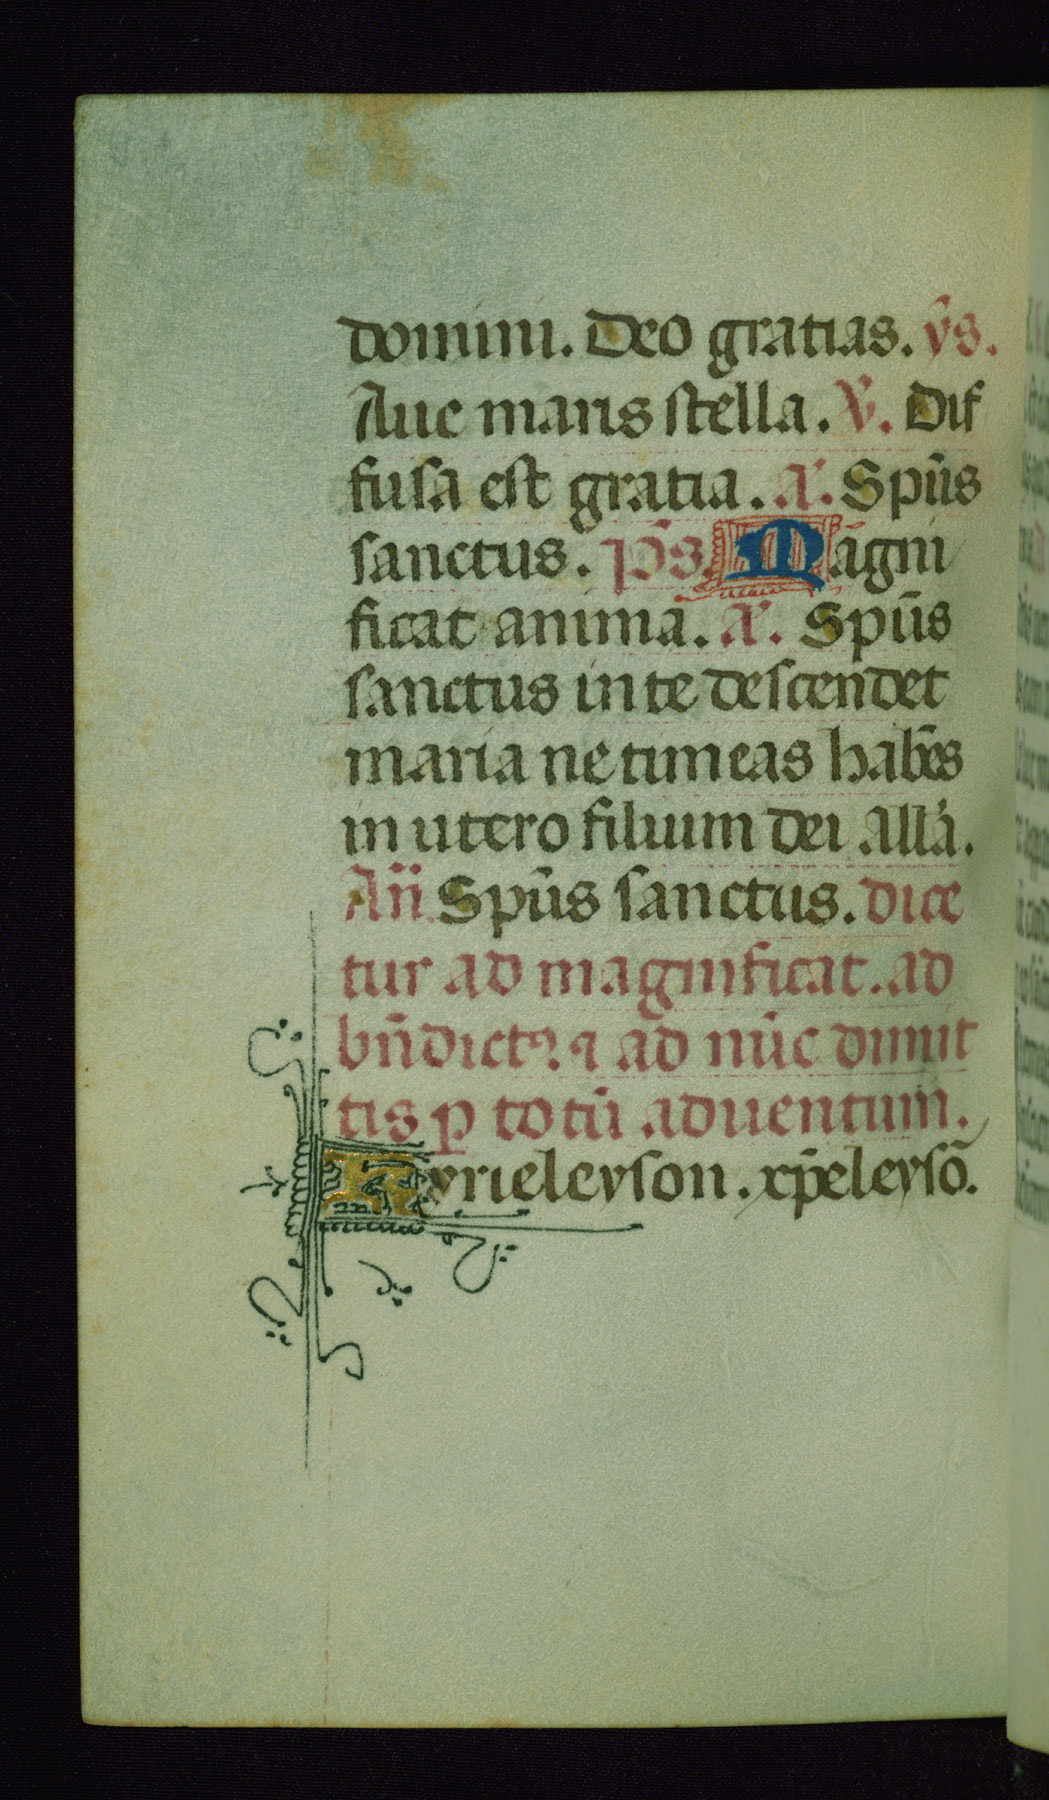 domini. Deo gratias. ỹs.
Aue maris stella. ỹ. Dif
fusa est gratia. a͛. Spūs
sanctus. p̄s. Magni
ficat anima. a͛. Spūs
sanctus in te descendet
maria ne timeas habēs
in utero filium dei All'a.
An̄ Spūs sanctus. dice
tur ad magnificat. ad
bn̄dictꝰ. ⁊ ad nūc dimit
tis p totū aduentum.
Kyrieleyson. xp̄eleysō.